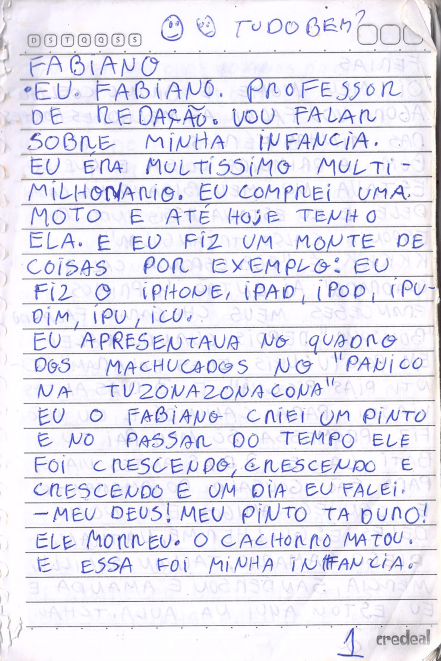 TUDO BEM?
D S T Q Q S S
FABIANO
•EU. FABIANO. PROFESSOR
DE REDAÇÃO. VOU FALAR
SOBRE MINHA INFANCIA.
EU ÉRA MULTÍSSIMO MULTI-
MILHONARIO. EU COMPREI UMA
MOTO E ATÉ HOJE TENHO
ELA. E EU FIZ UM MONTE DE
COISAS POR EXEMPLO: EU
FIZ O IPHONE, IPAD, IPOD, IPU-
DIM, IPU, ICU.
EU APRESENTAVA NO QUADRO
DOS MACHUCADOS NO "PANICO
NA TUZONAZONACONA"
EU O FABIANO CRIEI UM PINTO
E NO PASSAR DO TEMPO ELE
FOI CRESCENDO, CRESCENDO E
CRESCENDO E UM DIA EU FALEI.
-MEU DEUS! MEU PINTO TA DURO!
ELE MORREU. O CACHORRO MATOU.
E ESSA FOI MINHA INFANCIA.
1 credeal